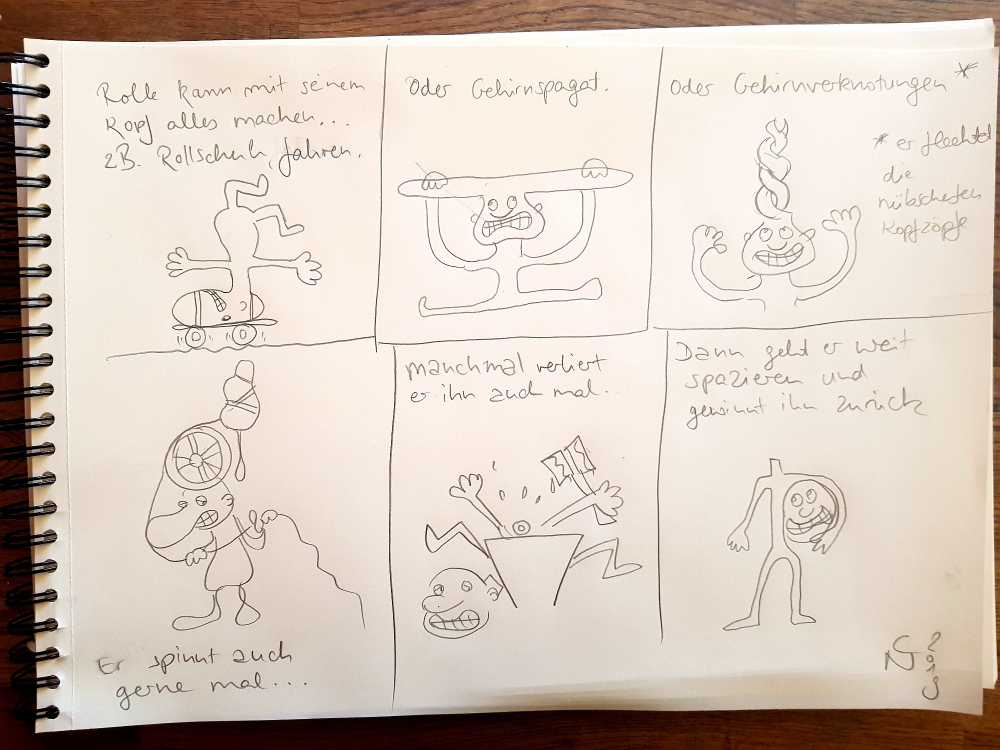 Rolle kann mit seinem
Kopf alles machen...
zB. Rollschuh fahren.
Oder Gehirnspagat.
Oder Gehirnverknotungen *
* er flechtet
die
hübschesten
Kopfzöpfe
Er spinnt auch
gerne mal...
manchmal verliert
er ihn auch mal..
Dann geht er weit
spazieren und
gewinnt ihn zurück